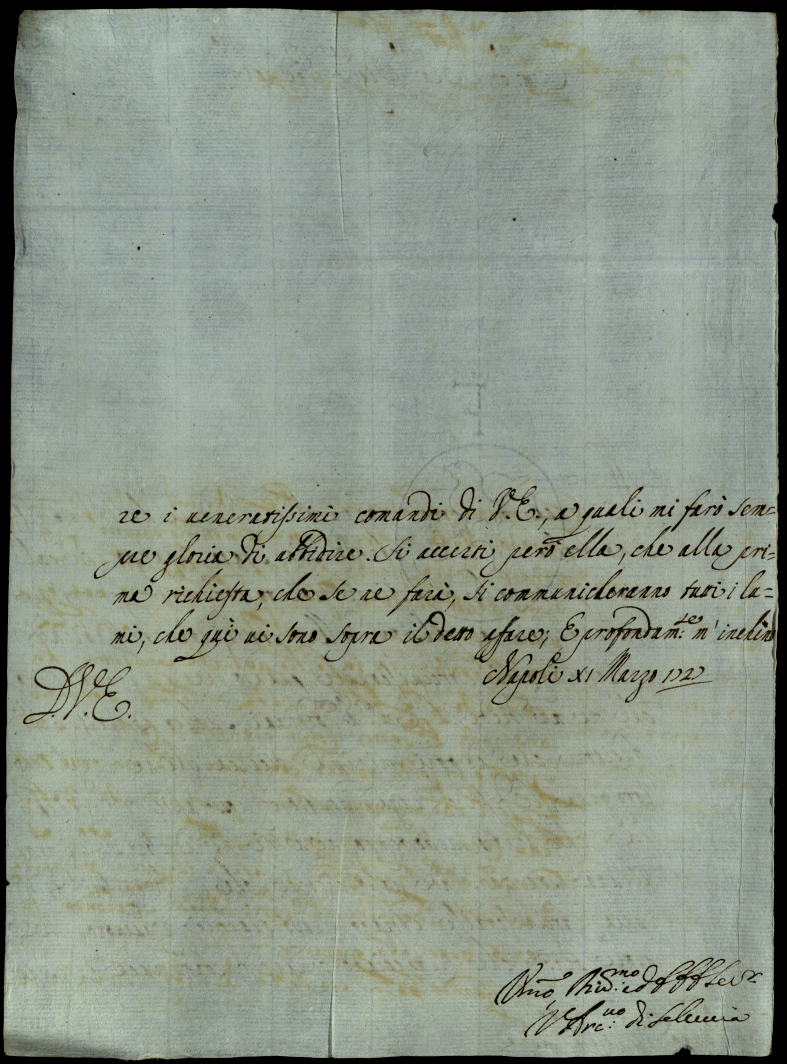 re i veneratissimi comandi di V.E., a quali mi farò sem=
pre gloria di abbidire. Si accerti però ella, che alla pri=
ma richiesta, che se ne farà, si communicheranno tutti i lu=
mi, che quì vi sono sopra il detto affare; E profondam.te m'inchino
Napoli XI Marzo 1727
D.V.E.
di Seleucia